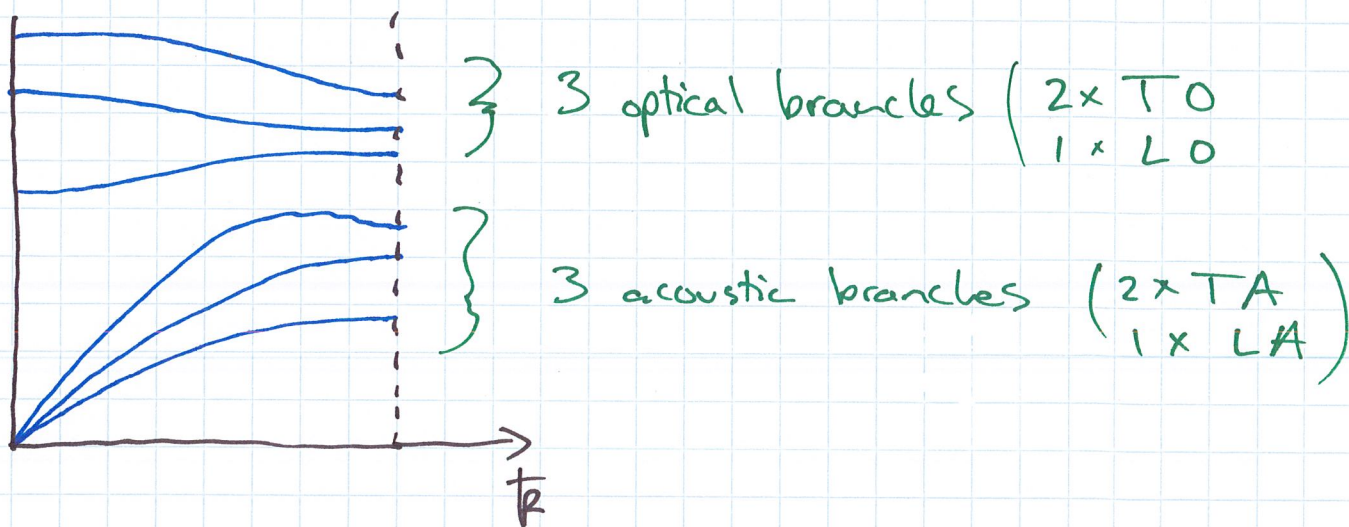 3 optical branches ( 2x TO
1 x LO
3 acoustic branches ( 2 x TA
1 x LA )
k